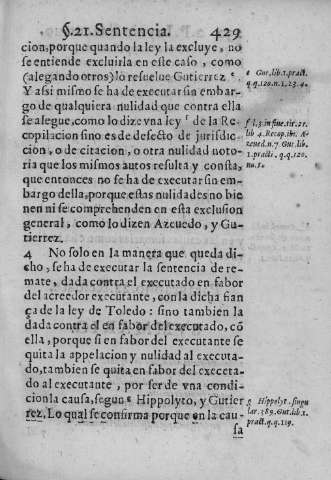 §.21. Sentencia. 429
cion, porque quando la ley la excluye, no
se entiende excluirla en este caso, como
(alegando otros) lo resuelve Gutierrez e.
Y assi mismo se ha de executar sin embar-
go de qualquiera nulidad que contra ella
se alegue, como lo dize vna ley f de la Re-
copilacion sino es de defecto de jurisdic-
cion, o de citacion, o otra nulidad noto-
ria que los mismos autos resulta y consta,
que entonces no se ha de executar sin em-
bargo della, porque estas nulidades no bie
nen ni se comprehenden en esta exclusion
general, como lo dizen Azcuedo, y Gu-
tierrez.
4 No solo en la manera que queda di-
cho, se ha de executar la sentencia de re-
mate, dada contra el executado en fabor
del acreedor executante, con la dicha fian
ça de la ley de Toledo: sino tambien la
dada contra el en fabor del executado, cõ
ella, porque si en fabor del executante se
quita la appelacion y nulidad al executa-
do, tambien se quita en fabor del execeta-
do al executante, por ser de vna condi-
cion la causa, segun g Hippolyto, y Gutier
rez. Lo qual se confirma porque en la cau-
sa
e Gut. lib. 1. pract.
q. q. 120. n. 1. 23. 4.
f l. 3. in fine. tit. 21.
lib 4. Recop. ibi. A-
zeued. n. 7 Gut. lib.
1. pract. q. q. 120.
nu. 1.
g Hippolyt. singu
lar. 389. Gut. lib. 1.
pract. q. q. 119.